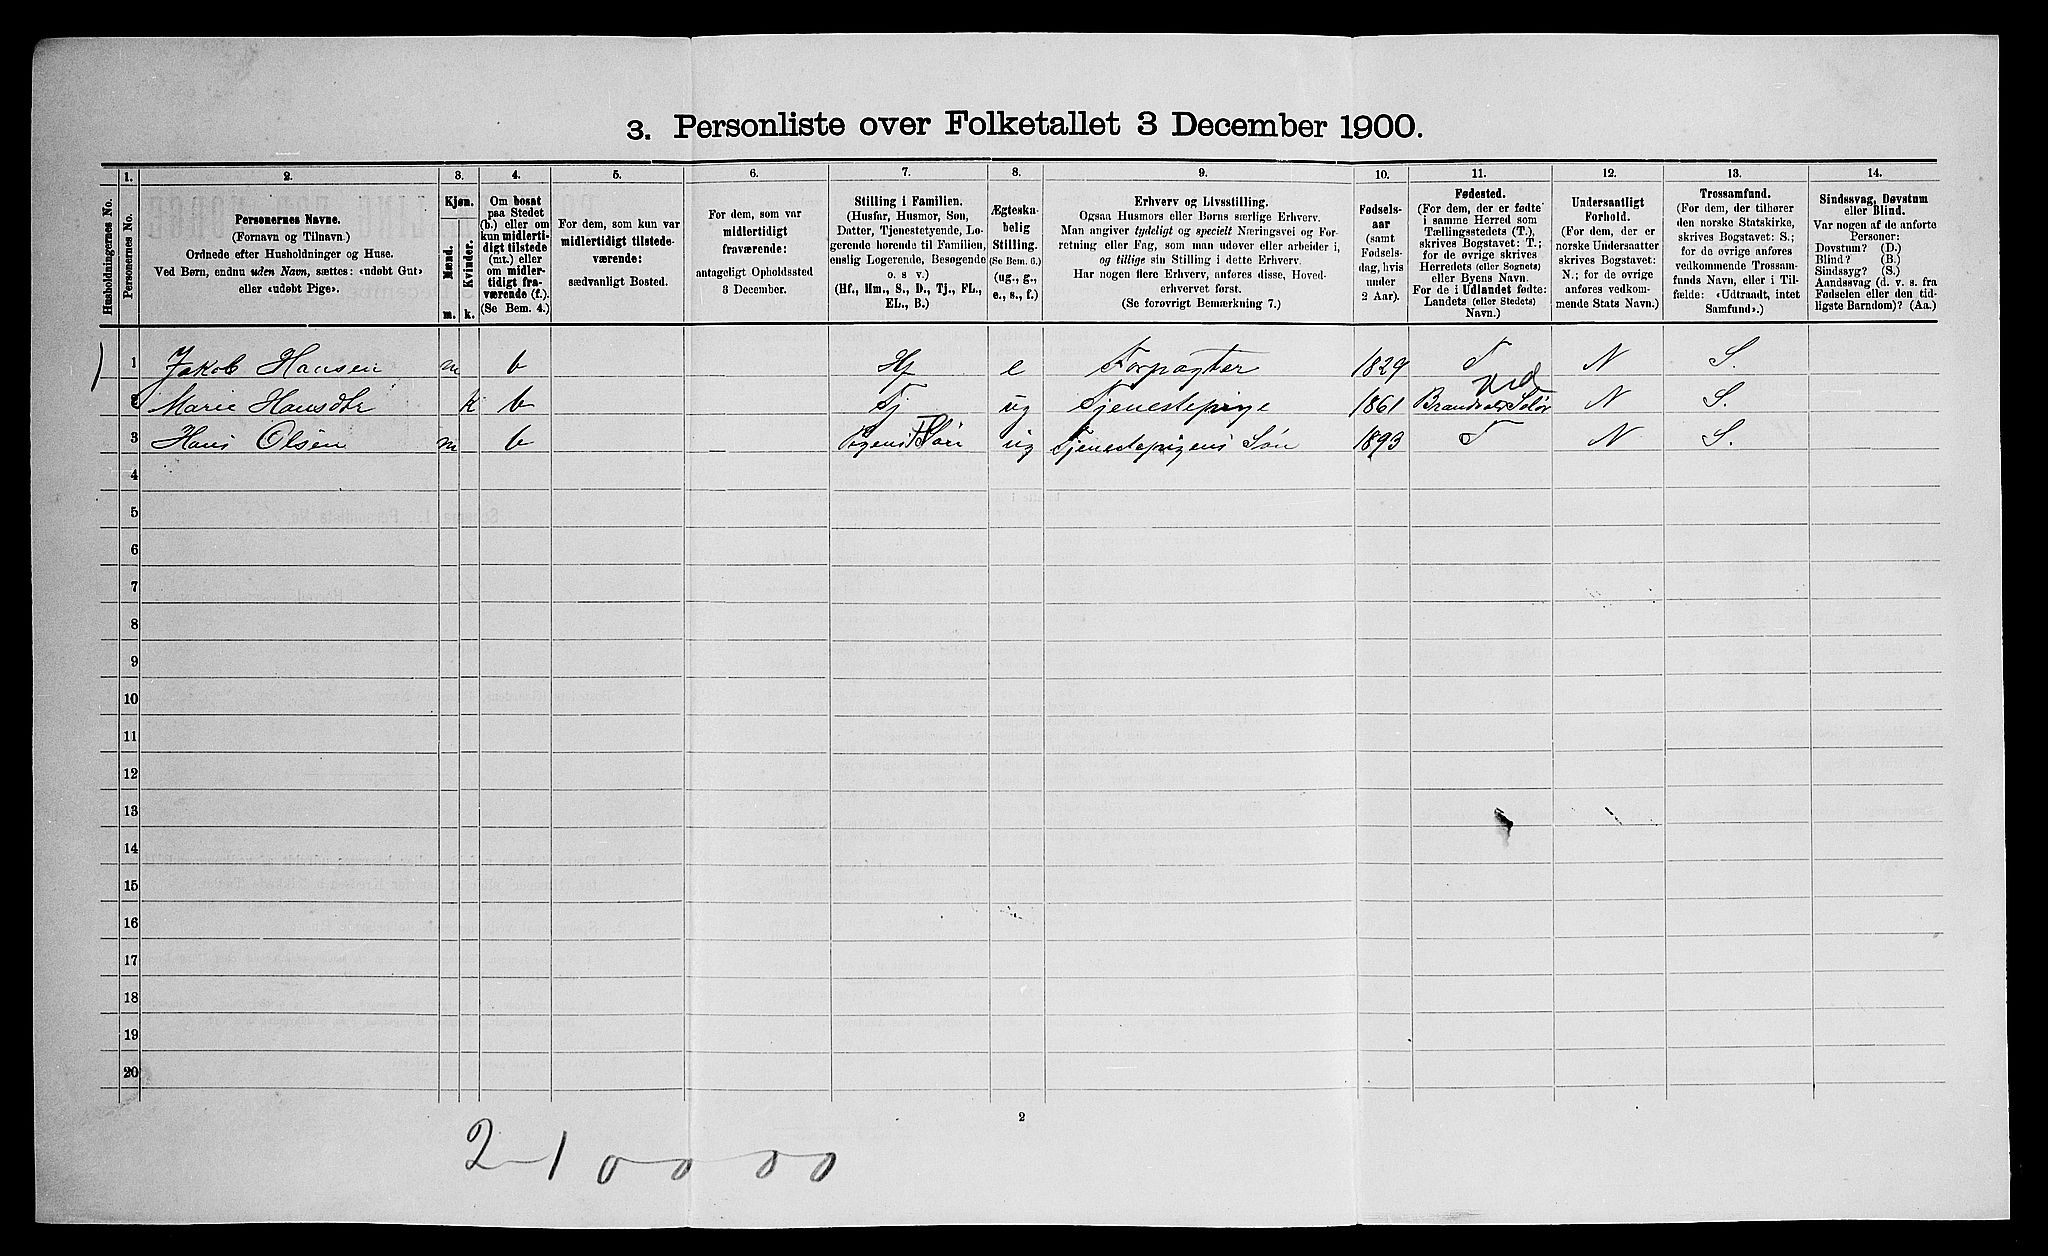 3. Personliste over Folketallet 3 December 1900.
1. 2. 3. 4. 5. 6. 7. 8. 9. 10. 11. 12. 13. 14.
Husholdningernes No.
Personernes No.
Personernes Navne.
(Fornavn og Tilnavn.)
Ordnede efter Husholdninger og Huse.
Ved Børn, endnu uden Navn, sættes: «udøbt Gut»
eller «udøbt Pige».
Kjøn.
Mænd.
Kvinder.
m. k.
Om bosat
paa Stedet
(b.) eller om
kun midlerti-
digt tilstede
(mt.) eller
om midler-
tidigt fra-
værende (f.).
(Se Bem. 4.)
For dem, som kun var
midlertidigt tilstede-
værende:
sædvanligt Bosted.
For dem, som var
midlertidigt
fraværende:
antageligt Opholdssted
3 December.
Stilling i Familien.
(Husfar, Husmor, Søn,
Datter, Tjenestetyende, Lo-
gerende hørende til Familien,
enslig Logerende, Besøgende
o. s v.)
(Hf., Hm., S., D., Tj., FL.,
EL., B.)
Ægteska-
belig
Stilling.
(Se Bem. 6.)
(ug., g.,
e., s., f.)
Erhverv og Livsstilling.
Ogsaa Husmors eller Børns særlige Erhverv.
Man angiver tydeligt og specielt Næringsvei og For-
retning eller Fag, som man udøver eller arbeider i,
og tillige sin Stilling i dette Erhverv.
Har nogen flere Erhverv, anføres disse, Hoved-
erhvervet først.
(Se forøvrigt Bemærkning 7.)
Fødsels-
aar
(samt
Fødsels-
dag, hvis
under
2 Aar).
Fødested.
(For dem, der er fødte
i samme Herred som
Tællingsstedets (T.),
skrives Bogstavet: T.;
for de øvrige skrives
Herredets (eller Sognets)
eller Byens Navn.
For de i Udlandet fødte:
Landets (eller Stedets)
Navn.)
Undersaatligt
Forhold.
(For dem, der er
norske Undersaatter
skrives Bogstavet:
N.; for de øvrige
anføres vedkom-
mende Stats Navn.)
Trossamfund.
(For dem, der tilhører
den norske Statskirke,
skrives Bogstavet: S.;
for de øvrige anføres
vedkommende Trossam-
funds Navn, eller i Til-
fælde: «Udtraadt, intet
Samfund».)
Sindssvag, Døvstum
eller Blind.
Var nogen af de anførte
Personer:
Døvstum? (D.)
Blind? (B.)
Sindssyg? (S.)
Aandssvag (d. v. s. fra
Fødselen eller den tid-
ligste Barndom)? (Aa.)
1) 1 Jakob Hansen m b Hf e Forpagter 1829 T N S.
2 Marie Hansdtr k b Tj ug Tjenestepige 1861 Brandval Solør N S.
3 Hans Olsen m b Søn ug Tjenestepigens Søn 1893 T N S.
4
5
6
7
8
9
10
11
12
13
14
15
16
17
18
19
20
2
2-1 0-0 0-0